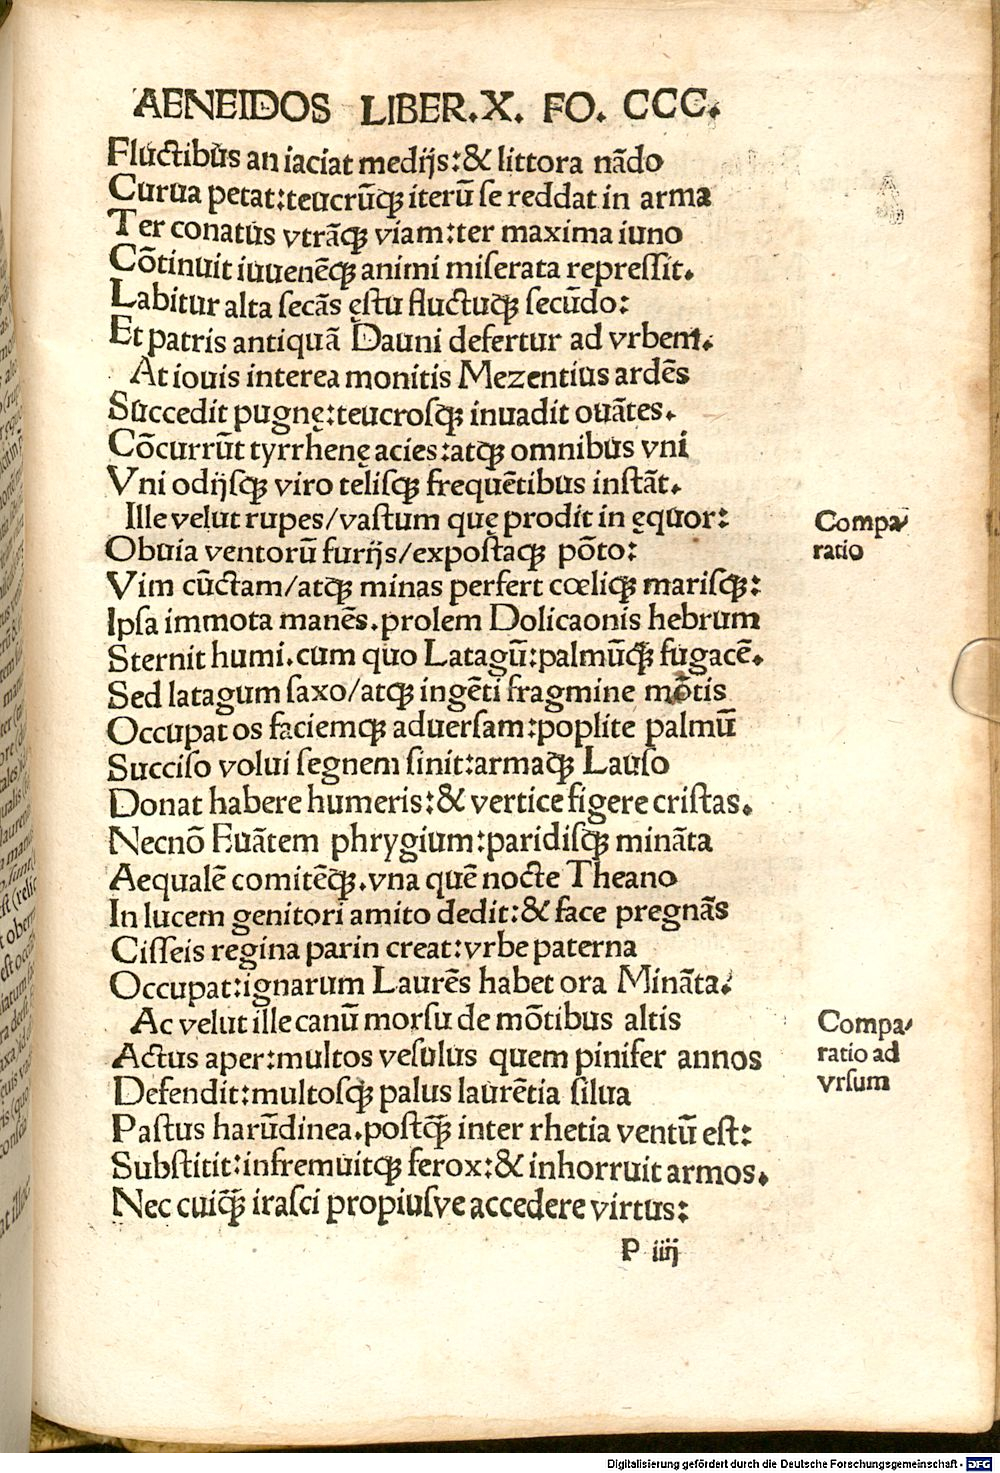 AENEIDOS LIBER.X. FO. CCC.
Fluctibus an iaciat medijs:& littora nādo
Curua petat:teucrūq; iterū se reddat in arma
Ter conatus vtrāq; viam:ter maxima iuno
Cōtinuit iuuenēq; animi miserata repressit.
Labitur alta secās ęstu fluctuq; secūdo:
Et patris antiquā Dauni defertur ad vrbem.
At iouis interea monitis Mezentius ardēs
Succedit pugnę:teucrosq; inuadit ouātes.
Cōcurrūt tyrrhenę acies:atq; omnibus vni
Vni odijsq; viro telisq; frequētibus instāt.
Ille velut rupes/vastum quę prodit in ęquor:
Compa/
Obuia ventorū furijs/expostaq; pōto:
ratio
Vim cūctam/atq; minas perfert cœliq; marisq;:
Ipsa immota manēs.prolem Dolicaonis hebrum
Sternit humi.cum quo Latagū:palmūq; fugacē.
Sed latagum saxo/atq; ingēti fragmine mōtis
Occupat os faciemq; aduersam:poplite palmū
Succiso volui segnem sinit:armaq; Lauso
Donat habere humeris:& vertice figere cristas.
Necnō Euātem phrygium:paridisq; mināta
Aequalē comitēq;.vna quē nocte Theano
In lucem genitori amito dedit:& face pregnās
Cisseis regina parin creat:vrbe paterna
Occupat:ignarum Laurēs habet ora Mināta:
Ac velut ille canū morsu de mōtibus altis
Compa/
Actus aper:multos vesulus quem pinifer annos
ratio ad
Defendit:multosq; palus laurētia silua
vrsum
Pastus harūdinea.postq̄ inter rhetia ventū est:
Substitit:infremuitq; ferox:& inhorruit armos.
Nec cuiq̄ irasci propiusve accedere virtus:
P iiij
Digitalisierung gefördert durch die Deutsche Forschungsgemeinschaft - DFG